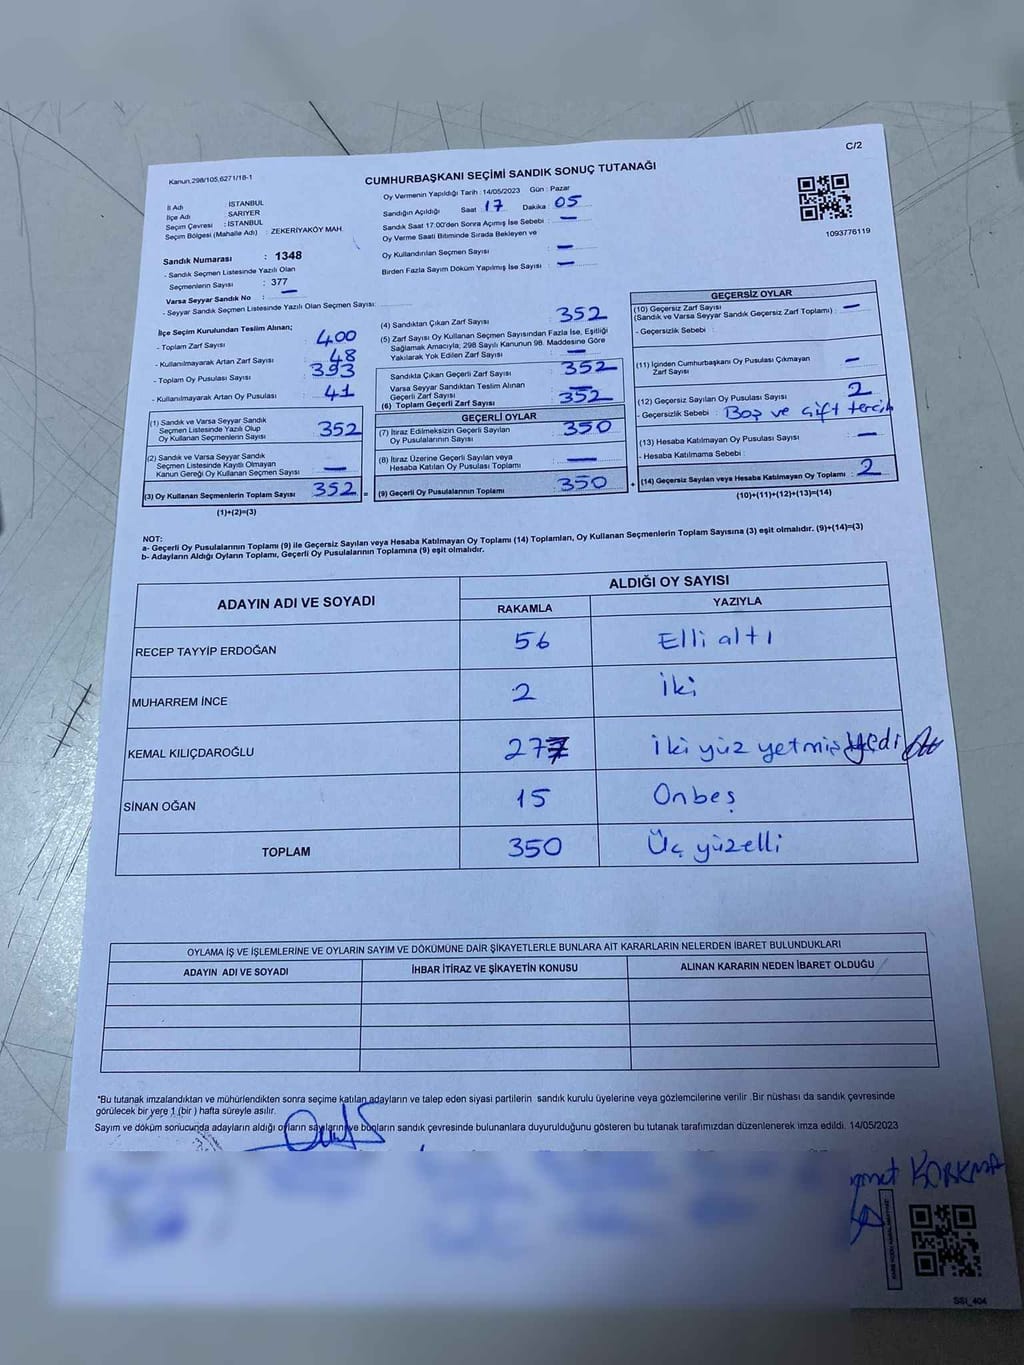 C/2
Kanun.298/105,6271/18-1
CUMHURBAŞKANI SEÇİMİ SANDIK SONUÇ TUTANAĞI
Oy Vermenin Yapıldığı Tarih : 14/05/2023 Gün : Pazar
İl Adı : İSTANBUL
İlçe Adı : SARIYER
Seçim Çevresi : İSTANBUL
Seçim Bölgesi (Mahalle Adı) : ZEKERİYAKÖY MAH.
Sandığın Açıldığı Saat 17 Dakika : 05
Sandık Saat 17:00'den Sonra Açımış İse Sebebi : —
Oy Verme Saati Bitiminde Sırada Bekleyen ve
Oy Kullandırılan Seçmen Sayısı : —
Birden Fazla Sayım Döküm Yapılmış İse Sayısı : —
1093776119
Sandık Numarası : 1348
- Sandık Seçmen Listesinde Yazılı Olan
Seçmenlerin Sayısı : 377
Varsa Seyyar Sandık No : —
- Seyyar Sandık Seçmen Listesinde Yazılı Olan Seçmen Sayısı:
İlçe Seçim Kurulundan Teslim Alınan;
- Toplam Zarf Sayısı : 400
- Kullanılmayarak Artan Zarf Sayısı : 48
- Toplam Oy Pusulası Sayısı : 393
- Kullanılmayarak Artan Oy Pusulası : 41
(1) Sandık ve Varsa Seyyar Sandık
Seçmen Listesinde Yazılı Olup
Oy Kullanan Seçmenlerin Sayısı : 352
(2) Sandık ve Varsa Seyyar Sandık
Seçmen Listesinde Kayıtlı Olmayan
Kanun Gereği Oy Kullanan Seçmen Sayısı : —
(3) Oy Kullanan Seçmenlerin Toplam Sayısı : 352 =
(1)+(2)=(3)
(4) Sandıktan Çıkan Zarf Sayısı : 352
(5) Zarf Sayısı Oy Kullanan Seçmen Sayısından Fazla İse, Eşitliği
Sağlamak Amacıyla; 298 Sayılı Kanunun 98. Maddesine Göre
Yakılarak Yok Edilen Zarf Sayısı : —
Sandıkta Çıkan Geçerli Zarf Sayısı : 352
Varsa Seyyar Sandıktan Teslim Alınan
Geçerli Zarf Sayısı : —
(6) Toplam Geçerli Zarf Sayısı : 352
GEÇERLİ OYLAR
(7) İtiraz Edilmeksizin Geçerli Sayılan
Oy Pusulalarının Sayısı : 350
(8) İtiraz Üzerine Geçerli Sayılan veya
Hesaba Katılan Oy Pusulası Toplamı : —
(9) Geçerli Oy Pusulalarının Toplamı : 350 +
GEÇERSİZ OYLAR
(10) Geçersiz Zarf Sayısı
(Sandık ve Varsa Seyyar Sandık Geçersiz Zarf Toplamı) : —
- Geçersizlik Sebebi :
(11) İçinden Cumhurbaşkanı Oy Pusulası Çıkmayan
Zarf Sayısı : —
(12) Geçersiz Sayılan Oy Pusulası Sayısı : 2
- Geçersizlik Sebebi : Boş ve Çift tercih
(13) Hesaba Katılmayan Oy Pusulası Sayısı : —
- Hesaba Katılmama Sebebi :
(14) Geçersiz Sayılan veya Hesaba Katılmayan Oy Toplamı : 2
(10)+(11)+(12)+(13)=(14)
NOT:
a- Geçerli Oy Pusulalarının Toplamı (9) ile Geçersiz Sayılan veya Hesaba Katılmayan Oy Toplamı (14) Toplamları, Oy Kullanan Seçmenlerin Toplam Sayısına (3) eşit olmalıdır. (9)+(14)=(3)
b- Adayların Aldığı Oyların Toplamı, Geçerli Oy Pusulalarının Toplamına (9) eşit olmalıdır.
ADAYIN ADI VE SOYADI ALDIĞI OY SAYISI
RAKAMLA YAZIYLA
RECEP TAYYİP ERDOĞAN 56 Elli altı
MUHARREM İNCE 2 İki
KEMAL KILIÇDAROĞLU 277 İki yüz yetmiş yedi
SİNAN OĞAN 15 Onbeş
TOPLAM 350 Üç yüzelli
OYLAMA İŞ VE İŞLEMLERİNE VE OYLARIN SAYIM VE DÖKÜMÜNE DAİR ŞİKAYETLERLE BUNLARA AİT KARARLARIN NELERDEN İBARET BULUNDUKLARI
ADAYIN ADI VE SOYADI İHBAR İTİRAZ VE ŞİKAYETİN KONUSU ALINAN KARARIN NEDEN İBARET OLDUĞU
*Bu tutanak imzalandıktan ve mühürlendikten sonra seçime katılan adayların ve talep eden siyasi partilerin sandık kurulu üyelerine veya gözlemcilerine verilir .Bir nüshası da sandık çevresinde
görülecek bir yere 1 (bir ) hafta süreyle asılır.
Sayım ve döküm sonucunda adayların aldığı oyların sayılarını ve bunların sandık çevresinde bulunanlara duyurulduğunu gösteren bu tutanak tarafımızdan düzenlenerek imza edildi. 14/05/2023
KORKMA
SSI_404